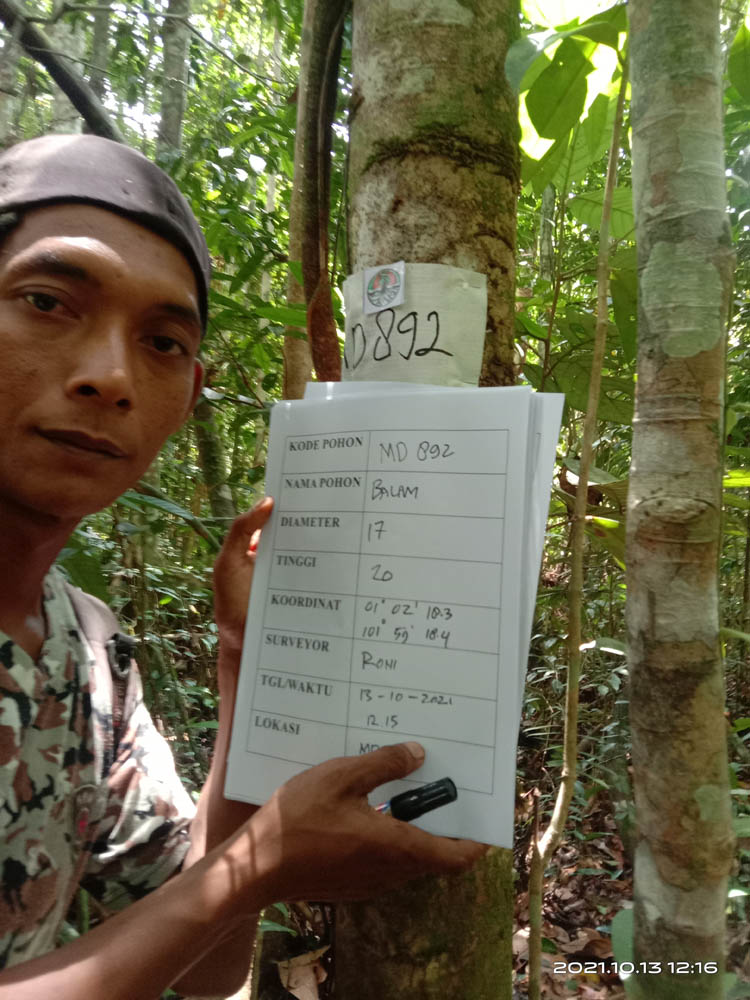 D892
KODE POHON MD 892
NAMA POHON BALAM
DIAMETER 17
TINGGI 20
KOORDINAT 01° 02' 18.3
101° 59' 18.4
SURVEYOR RONI
TGL/WAKTU 13-10-2021
12.15
LOKASI MD
2021.10.13 12:16